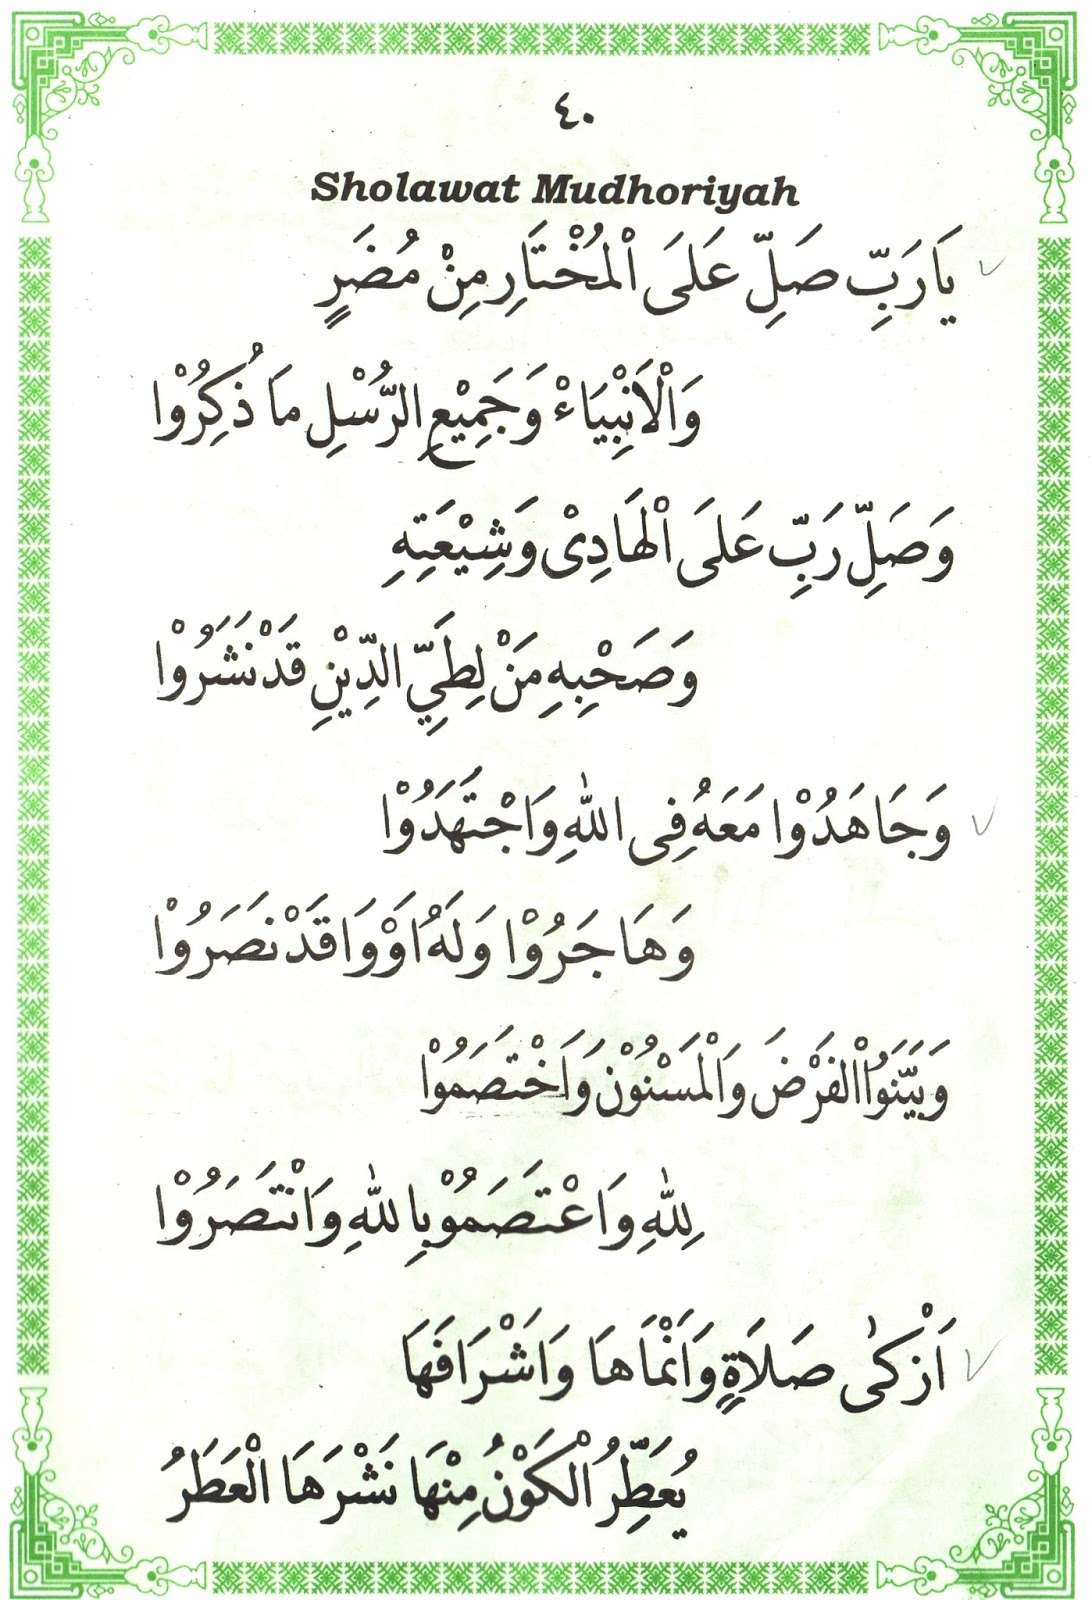 ٤٠
Sholawat Mudhoriyah
يَارَبِّ صَلِّ عَلَى اْلمُخْتَارِ مِنْ مُضَرٍ
وَاْلَانْبِيَاءْ وَجَمِيْعِ الرُّسْلِ مَا ذُكِرُوْا
وَصَلِّ رَبِّ عَلَى اْلهَادِىْ وَشِيْعَتِهِ
وَصَحْبِهِ مَنْ لِطَيِّ الدِّيْنِ قَدْ نَشَرُوْا
وَجَاهَدُوْا مَعَهُ فِى اللهِ وَاجْتَهَدُوْا
وَهَاجَرُوْا وَلَهُ اَوْوَا قَدْ نَصَرُوْا
وَبَيَّنَوُاْالفَرْضَ وَاْلمَسْنُوْن وَاخْتَصَمُوْا
لِلهِ وَاعْتَصَمُوْبِاللهِ وَانْتَصَرُوْا
اَزْكَى صَلَاةٍ وَاَنْمَاهَا وَاَشْرَافَهَا
يُعَطِّرُ اْلكَوْنُ مِنْهَا نَشْرَهَا الْعَطَرُ